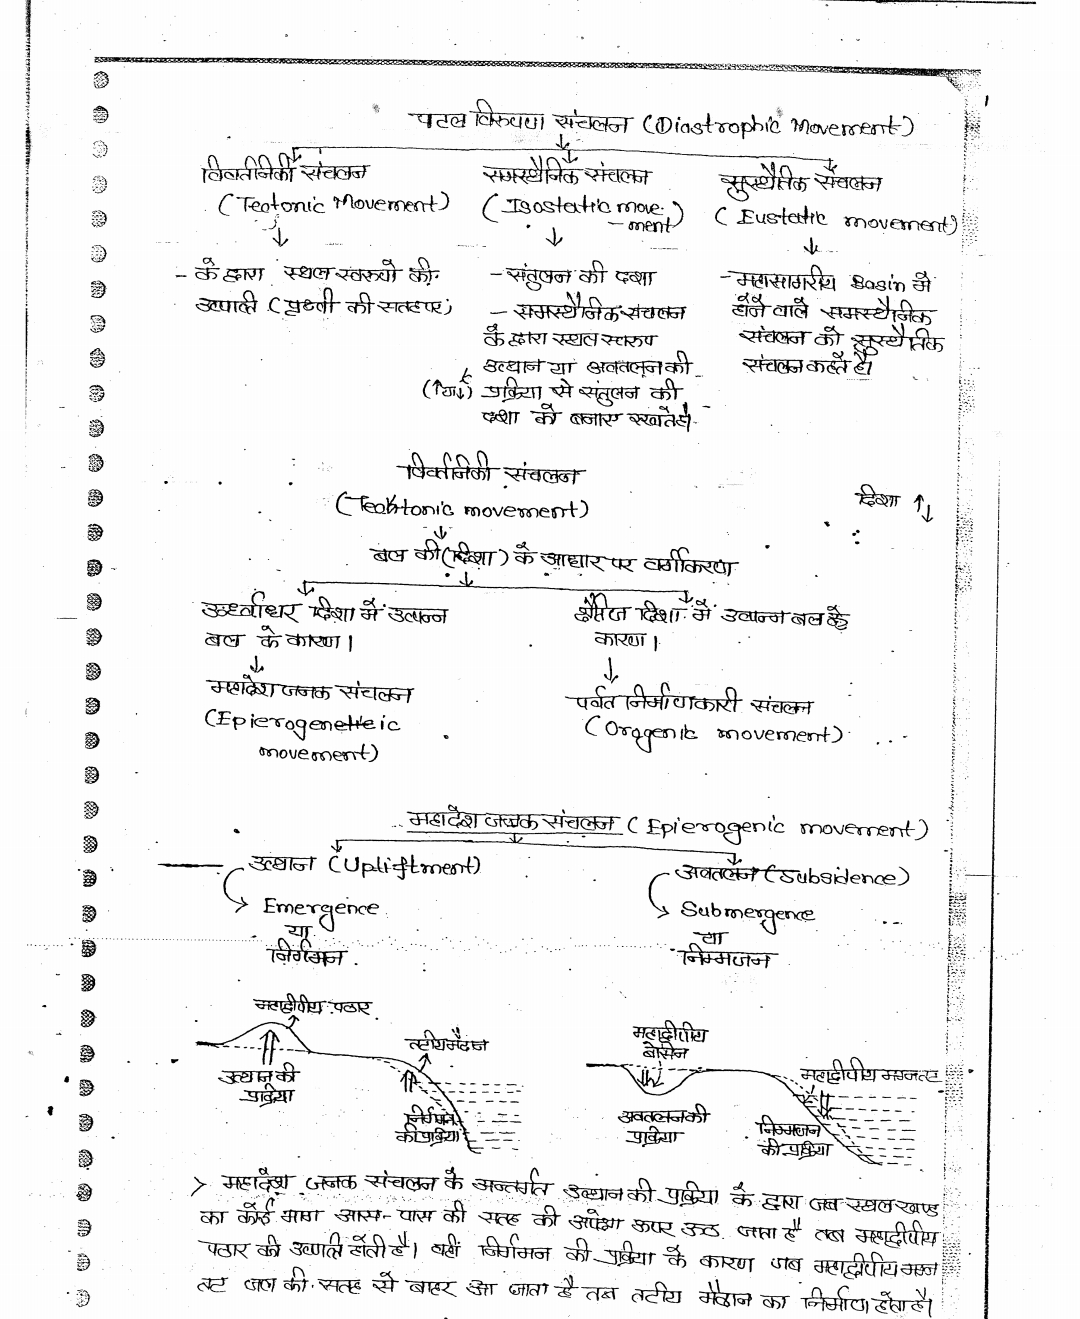 पटल विरुपण संचलन (Diastrophic Movement)
विवर्तनिकी संचलन
(Tectonic Movement)
- के द्वारा स्थल स्वरुपो की
उत्पत्ति (पृथ्वी की सतह पर)
समस्थैनिक संचलन
(Isostatic move-
-ment)
- संतुलन की दशा
- समस्थैनिक संचलन
के द्वारा स्थल स्वरुप
उत्थान या अवतलन की
(↑या↓) प्रक्रिया से संतुलन की
दशा को बनाए रखते है।
सुस्थैतिक संचलन
(Eustatic movement)
- महासागरीय Basin में
होने वाले समस्थैनिक
संचलन को सुस्थैतिक
संचलन कहते है।
विर्वतनिकी संचलन
(Tecktonic movement)
दिशा ↑↓
बल की (दिशा) के आधार पर वर्गीकरण
उर्ध्वाधर दिशा में उत्पन्न
बल के कारण।
महादेश जनक संचलन
(Epierogenetic
movement)
क्षैतिज दिशा में उत्पन्न बल के
कारण।
पर्वत निर्माणकारी संचलन
(Orogenic movement)
महादेश जनक संचलन (Epierogenic movement)
उत्थान (Upliftment)
Emergence
या
निर्गमन
अवतलन (Subsidence)
Submergence
या
निम्मजन
महाद्वीपीय पठार
उत्थान की
प्रक्रिया
तटीय मैदान
निर्गमन
की प्रक्रिया
महाद्वीपीय
बेसिन
अवतलन की
प्रक्रिया
महाद्वीपीय मग्नतट
निम्मजन
की प्रक्रिया
> महादेश जनक संचलन के अन्तर्गत उत्थान की प्रक्रिया के द्वारा जब स्थलखण्ड
का कोई भाग आस-पास की सतह की अपेक्षा ऊपर उठ जाता है तब महाद्वीपीय
पठार की उत्पत्ति होती है। वहीं निर्गमन की प्रक्रिया के कारण जब महाद्वीपीय मग्न
तट जल की सतह से बाहर आ जाता है तब तटीय मैदान का निर्माण होता है।